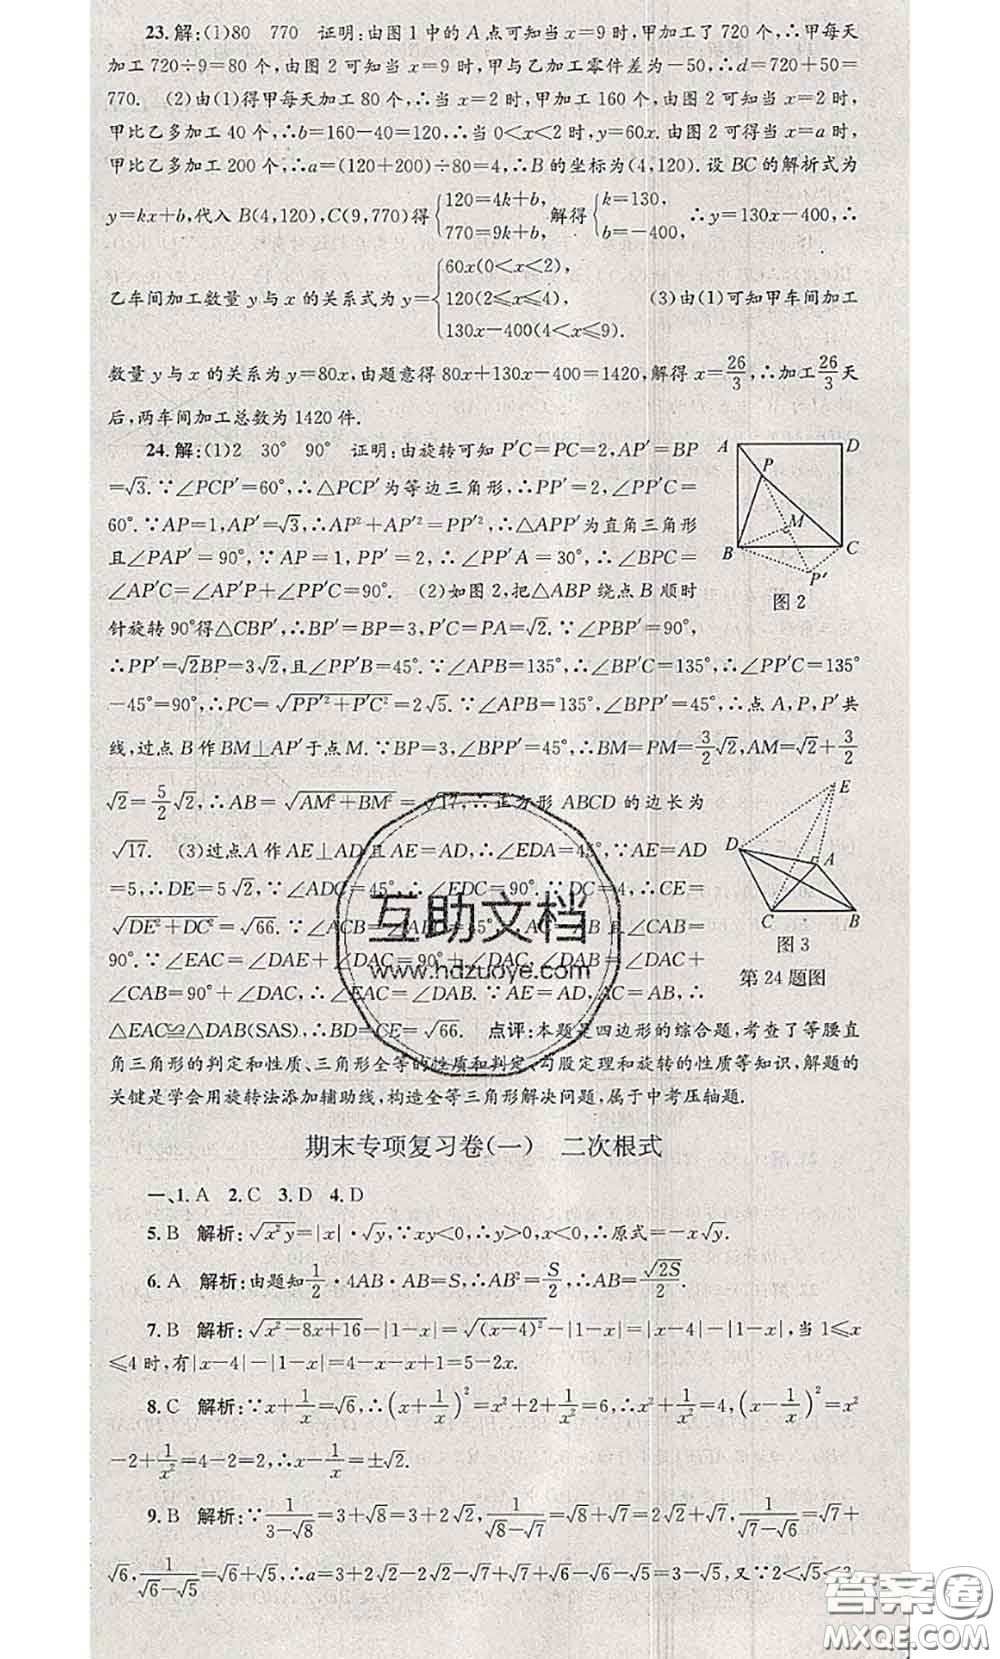 23.解:(1)80　770　证明:由图1中的A点可知当x=9时,甲加工了720个,∴甲每天
加工720÷9=80个,由图2可知当x=9时,甲与乙加工零件差为-50,∴d=720+50=
770.　(2)由(1)得甲每天加工80个,∴当x=2时,甲加工160个,由图2可知当x=2时,
甲比乙多加工40个,∴b=160-40=120,∴当0<x<2时,y=60x.由图2可得当x=a时,
甲比乙多加工200个,∴a=(120+200)÷80=4,∴B的坐标为(4,120).设BC的解析式为
y=kx+b,代入B(4,120),C(9,770)得{120=4k+b, 770=9k+b, 解得{k=130, b=-400, ∴y=130x-400,∴
乙车间加工数量y与x的关系式为y={60x(0<x<2), 120(2≤x≤4), 130x-400(4<x≤9).　(3)由(1)可知甲车间加工
数量y与x的关系为y=80x,由题意得80x+130x-400=1420,解得x=26/3,∴加工26/3天
后,两车间加工总数为1420件.
24.解:(1)2　30°　90°　证明:由旋转可知P′C=PC=2,AP′=BP
=√3.∵∠PCP′=60°,∴△PCP′为等边三角形,∴PP′=2,∠PP′C=
60°.∵AP=1,AP′=√3,∴AP²+AP′²=PP′²,∴△APP′为直角三角形
且∠PAP′=90°,∵AP=1,PP′=2,∴∠PP′A=30°,∴∠BPC=
∠AP′C=∠AP′P+∠PP′C=90°.　(2)如图2,把△ABP绕点B顺时
针旋转90°得△CBP′,∴BP′=BP=3,P′C=PA=√2.∵∠PBP′=90°,
∴PP′=√2BP=3√2,且∠PP′B=45°.∵∠APB=135°,∴∠BP′C=135°,∴∠PP′C=135°
-45°=90°,∴PC=√(PP′²+P′C²)=2√5.∵∠APB=135°,∠BPP′=45°,∴点A,P,P′共
线,过点B作BM⊥AP′于点M.∵BP=3,∠BPP′=45°,∴BM=PM=3/2√2,AM=√2+3/2
√2=5/2√2,∴AB=√(AM²+BM²)=√17,∴正方形ABCD的边长为
√17.　(3)过点A作AE⊥AD且AE=AD,∴∠EDA=45°.∵AE=AD
=5,∴DE=5√2,∵∠ADC=45°,∴∠EDC=90°.∵DC=4,∴CE=
√(DE²+DC²)=√66.∵∠ACB=∠ABC=45°,∴∠CAB=
90°.∵∠EAC=∠DAE+∠DAC=90°+∠DAC,∠DAB=∠DAC+
∠CAB=90°+∠DAC,∴∠EAC=∠DAB.∵AE=AD,AC=AB,∴
△EAC≌△DAB(SAS),∴BD=CE=√66.　点评:本题是四边形的综合题,考查了等腰直
角三角形的判定和性质、三角形全等的性质和判定、勾股定理和旋转的性质等知识,解题的
关键是学会用旋转法添加辅助线,构造全等三角形解决问题,属于中考压轴题.
A D P M B C P′
图2
E D A C B
图3
第24题图
互助文档
www.hdzuoye.com
期末专项复习卷(一)　二次根式
一、1.A　2.C　3.D　4.D
5.B　解析:√(x²y)=|x|·√y,∵xy<0,∴y>0,x<0,∴原式=-x√y.
6.A　解析:由题知1/2·4AB·AB=S,∴AB²=S/2,∴AB=√(2S)/2.
7.B　解析:√(x²-8x+16)-|1-x|=√((x-4)²)-|1-x|=|x-4|-|1-x|,当1≤x
≤4时,有|x-4|-|1-x|=4-x-x+1=5-2x.
8.C　解析:∵x+1/x=√6,∴(x+1/x)²=x²+2+1/x²=6,∴x²+1/x²=4,(x-1/x)²=x²
-2+1/x²=4-2=2,∴x-1/x=±√2.
9.B　解析:∵1/(3-√8)=3+√8=3+2√2,1/(√8-√7)=√8+√7=2√2+√7,1/(√7-√6)=√7+
√6,1/(√6-√5)=√6+√5,∴a=3+2√2-2√2-√7+√7+√6-√6-√5=3-√5,又∵2<√5<3,
答案圈
MXQE.COM